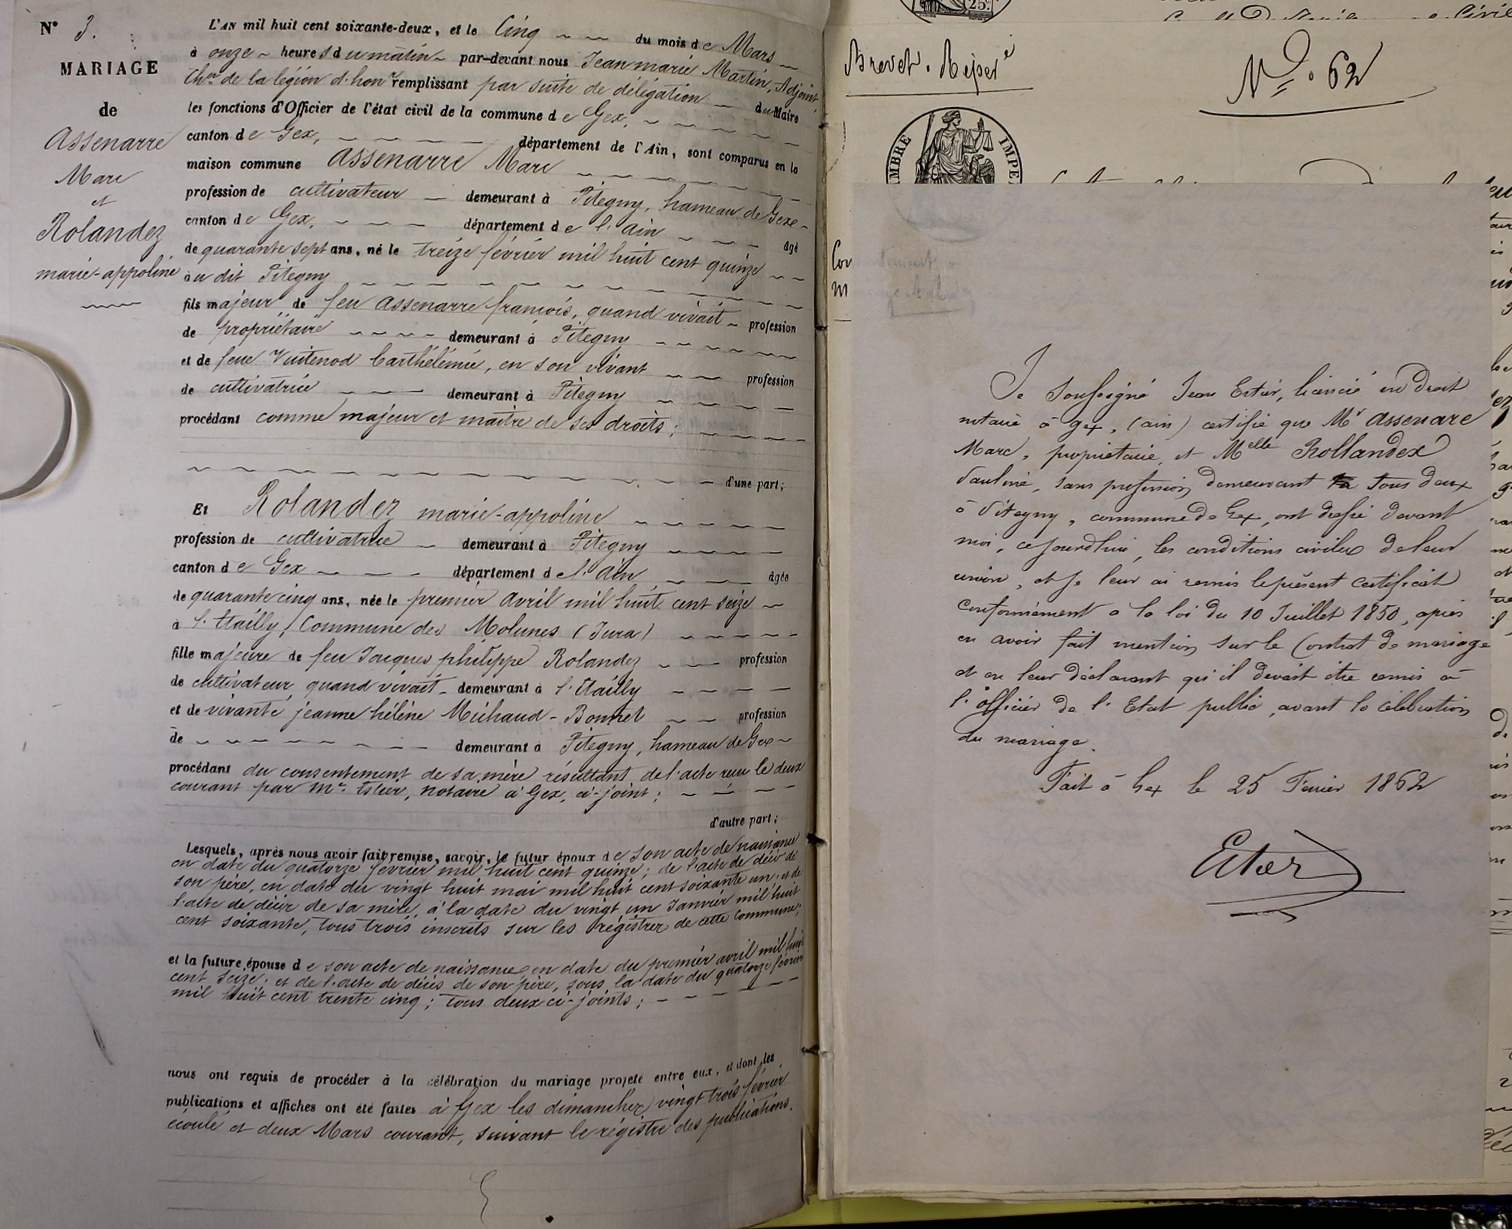 N° 3.
MARIAGE
de
Assenarre
Marc
et
Rolandez
marie-appoline
L'AN mil huit cent soixante-deux, et le Cinq du mois de Mars
à onze heures du matin par-devant nous Jean marie Martin, Adjoint,
Chev. de la légion d'honr remplissant par suite de délégation du Maire
les fonctions d'Officier de l'état civil de la commune de Gex,
canton de Gex, département de l'Ain, sont comparus en la
maison commune Assenarre Marc
profession de cultivateur demeurant à Pitegny, hameau de Gex
canton de Gex, département de l'ain âgé
de quarante sept ans, né le treize février mil huit cent quinze
au dit Pitegny
fils majeur de feu Assenarre françois, quand vivait profession
de propriétaire demeurant à Pitegny
et de feue Vuitenod Barthélémie, en son vivant profession
de cultivatrice demeurant à Pitegny
procédant comme majeur et maitre de ses droits;
d'une part;
Et Rolandez marie-appoline
profession de cultivatrice demeurant à Pitegny
canton de Gex département de l'ain, âgée
de quarante cinq ans, née le premier avril mil huit cent seize
à l'Etailly, Commune des Molunes (Jura)
fille majeure de feu Jacques philippe Rolandez profession
de cultivateur quand vivait demeurant à l'Etailly
et de vivante jeanne hélène Michaud-Bonnet profession
de demeurant à Pitegny, hameau de Gex
procédant du consentement de sa mère résultant de l'acte reçu le deux
courant par Me Estier, notaire à Gex, ci-joint;
d'autre part;
Lesquels, après nous avoir fait remise, savoir, le futur époux de son acte de naissance
en date du quatorze février mil huit cent quinze; de l'acte de décès de
son père, en date du vingt huit mai mil huit cent soixante un, et de
l'acte de décès de sa mère, à la date du vingt un Janvier mil huit
cent soixante, tous trois inscrits sur les régistres de cette commune;
et la future épouse de son acte de naissance en date du premier avril mil huit
cent seize; et de l'acte de décès de son père, sous la date du quatorze février
mil huit cent trente cinq; tous deux ci-joints;
nous ont requis de procéder à la célébration du mariage projeté entre eux, et dont les
publications et affiches ont été faites à Gex les dimanches vingt trois février
écoulé et deux Mars courant, suivant le régistre des publications.
Brevet. Déposé
No. 62
TIMBRE IMPE
Je soussigné Jean Estier, licencié en Droit
notaire à Gex, (ain) certifie que Mr Assenare
Marc, propriétaire, et Melle Rollandez
Pauline, sans profession, demeurant tous deux
à Pitegny, commune de Gex, ont dressé devant
moi, cejourd'hui, les conditions civiles de leur
union, et je leur ai remis le présent certificat
conformément à la loi du 10 Juillet 1850, après
en avoir fait mention sur le Contrat de mariage
et en leur déclarant qu'il devait être remis à
l'officier de l'Etat public, avant la célébration
du mariage.
Fait à Gex le 25 Février 1862
Estier